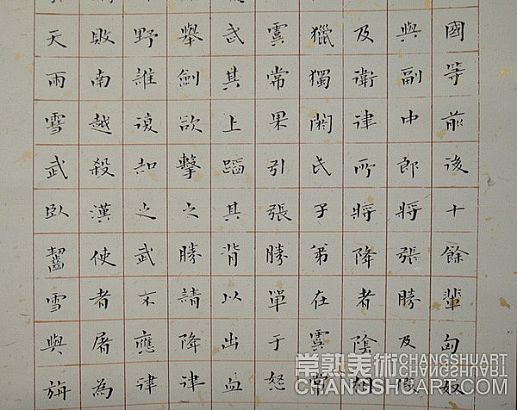 國等前後十餘輩匈奴
與副中郎將張勝及假
及衛律所將降者陰相
獵獨閼氏子弟在虞常
虞常果引張勝單于怒
武其上蹈其背以出血
舉劍欲擊之勝請降律
野誰復知之武不應律
敗南越殺漢使者屠為
天雨雪武臥齧雪與旃
常熟美術CHANGSHUART
CHANGSHUART.COM